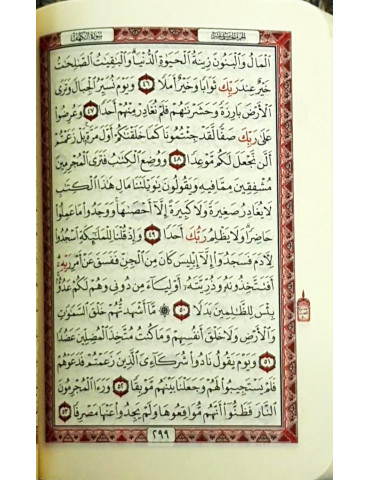 سورة الكهف
الجزء الخامس عشر
ٱلْمَالُ وَٱلْبَنُونَ زِينَةُ ٱلْحَيَوٰةِ ٱلدُّنْيَا ۖ وَٱلْبَٰقِيَٰتُ ٱلصَّٰلِحَٰتُ
خَيْرٌ عِندَ رَبِّكَ ثَوَابًا وَخَيْرٌ أَمَلًا ٤٦ وَيَوْمَ نُسَيِّرُ ٱلْجِبَالَ وَتَرَى
ٱلْأَرْضَ بَارِزَةً وَحَشَرْنَٰهُمْ فَلَمْ نُغَادِرْ مِنْهُمْ أَحَدًا ٤٧ وَعُرِضُوا۟
عَلَىٰ رَبِّكَ صَفًّا لَّقَدْ جِئْتُمُونَا كَمَا خَلَقْنَٰكُمْ أَوَّلَ مَرَّةٍۭ ۚ بَلْ زَعَمْتُمْ
أَلَّن نَّجْعَلَ لَكُم مَّوْعِدًا ٤٨ وَوُضِعَ ٱلْكِتَٰبُ فَتَرَى ٱلْمُجْرِمِينَ
مُشْفِقِينَ مِمَّا فِيهِ وَيَقُولُونَ يَٰوَيْلَتَنَا مَالِ هَٰذَا ٱلْكِتَٰبِ
لَا يُغَادِرُ صَغِيرَةً وَلَا كَبِيرَةً إِلَّآ أَحْصَىٰهَا ۚ وَوَجَدُوا۟ مَا عَمِلُوا۟
حَاضِرًا ۗ وَلَا يَظْلِمُ رَبُّكَ أَحَدًا ٤٩ وَإِذْ قُلْنَا لِلْمَلَٰٓئِكَةِ ٱسْجُدُوا۟
لِءَادَمَ فَسَجَدُوٓا۟ إِلَّآ إِبْلِيسَ كَانَ مِنَ ٱلْجِنِّ فَفَسَقَ عَنْ أَمْرِ رَبِّهِۦٓ ۗ
أَفَتَتَّخِذُونَهُۥ وَذُرِّيَّتَهُۥٓ أَوْلِيَآءَ مِن دُونِى وَهُمْ لَكُمْ عَدُوٌّۢ ۚ
بِئْسَ لِلظَّٰلِمِينَ بَدَلًا ٥٠ ۞ مَّآ أَشْهَدتُّهُمْ خَلْقَ ٱلسَّمَٰوَٰتِ
وَٱلْأَرْضِ وَلَا خَلْقَ أَنفُسِهِمْ وَمَا كُنتُ مُتَّخِذَ ٱلْمُضِلِّينَ عَضُدًا
٥١ وَيَوْمَ يَقُولُ نَادُوا۟ شُرَكَآءِىَ ٱلَّذِينَ زَعَمْتُمْ فَدَعَوْهُمْ
فَلَمْ يَسْتَجِيبُوا۟ لَهُمْ وَجَعَلْنَا بَيْنَهُم مَّوْبِقًا ٥٢ وَرَءَا ٱلْمُجْرِمُونَ
ٱلنَّارَ فَظَنُّوٓا۟ أَنَّهُم مُّوَاقِعُوهَا وَلَمْ يَجِدُوا۟ عَنْهَا مَصْرِفًا ٥٣
٢٩٩